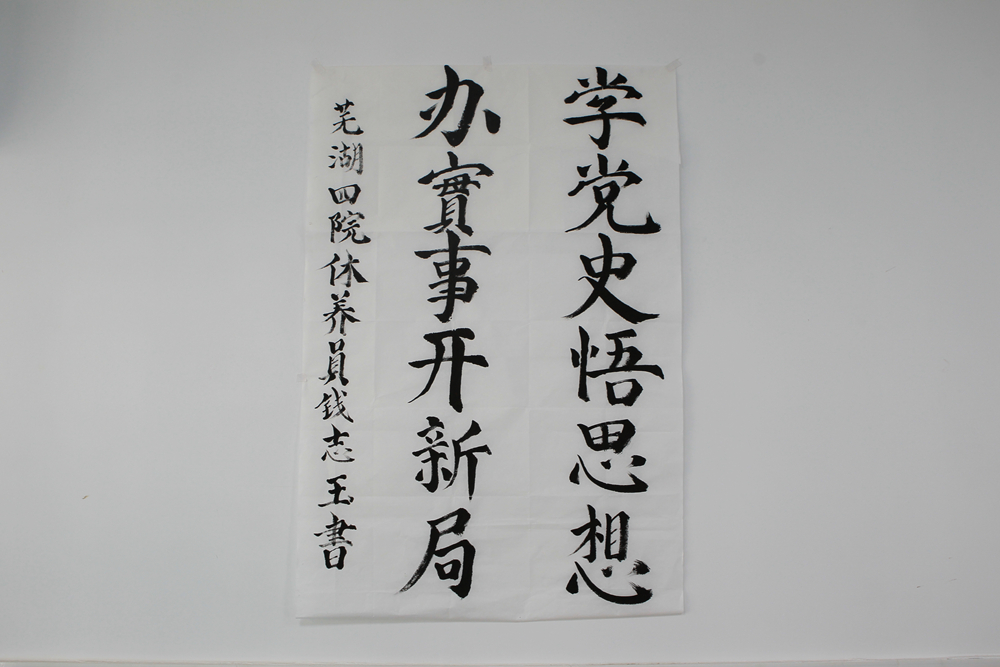 学党史悟思想
办實事开新局
芜湖四院休养員钱志玉書